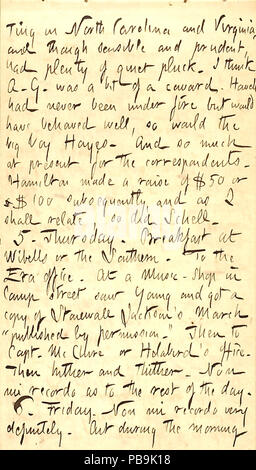 ting in North Carolina and Virginia
and though sensible and prudent,
had plenty of quiet pluck. I think
A. G. was a bit of a coward. Hawes
had never been under fire but would
have behaved well, so would the
big boy Hayes. And so much
at present for the correspondents.
Hamilton made a raise of $50 or
$100 subsequently, and as I
shall relate, so did Schell.
5. Thursday. Breakfast at
Wibells or the Southern. To the
Era Office. At a Music-Shop in
Camp Street saw Young and got a
copy of Stonewall Jackson's March
"published by permission." Then to
Capt. McClure or Holabird's Office.
Then hither and thither. Non
mi recordo as to the rest of the day.
6. Friday. Non mi recordo very
definitely. But during the morning
alamy
PB9K18